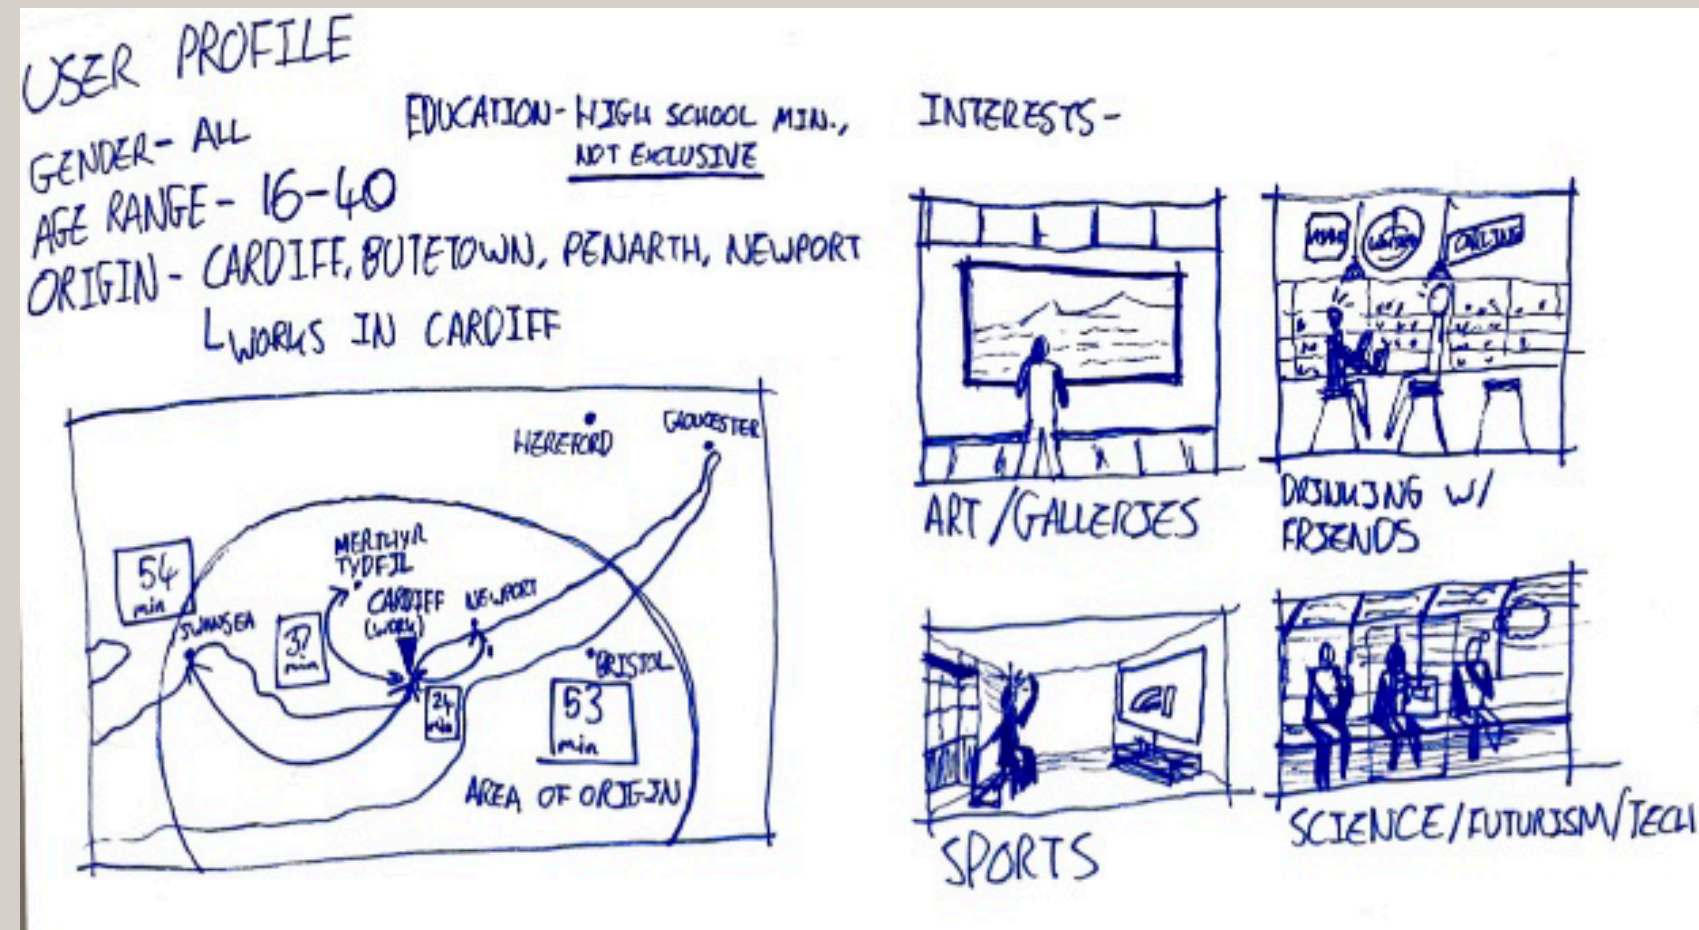 USER PROFILE
GENDER- ALL
AGE RANGE- 16-40
ORIGIN- CARDIFF, BUTETOWN, PENARTH, NEWPORT
WORKS IN CARDIFF
EDUCATION- HIGH SCHOOL MIN.,
NOT EXCLUSIVE
HEREFORD
GLOUCESTER
54
min
SWANSEA
MERTHYR
TYDFIL
37
min
CARDIFF
(WORK)
NEWPORT
24
min
BRISTOL
53
min
AREA OF ORIGIN
INTERESTS-
ART/GALLERIES
DRINKING W/
FRIENDS
SPORTS
SCIENCE/FUTURISM/TECH